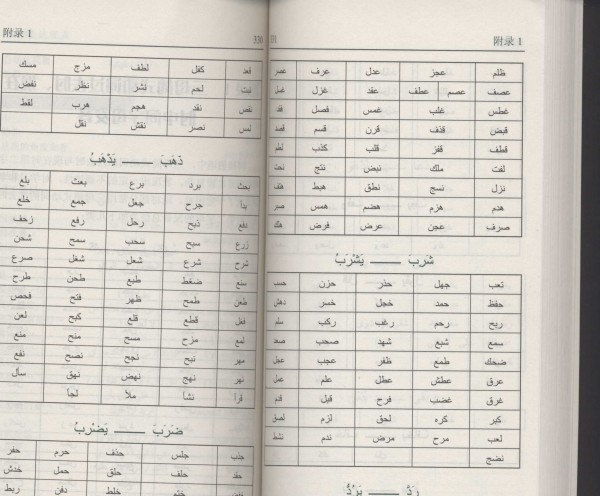 附录 1
330
قعد كفل لطف مزج مسك
نبت لحم نشر نظر نفض
نقد هجم هرب لقط
لمس نصر نقش نقل
ذَهَبَ —— يَذْهَبُ
بحث برد برع بعث بلغ
بدأ جرح جعل جمع خلع
دفع ذبح رحل رفع زحف
زرع سبح سحب سمح شحن
شرح شرع شعل شغل صرع
صنع ضغط طبع طحن طرح
طعن طمح ظهر فتح فحص
فعل قطع قلع كبح لعن
لمع مزح مسح منح منع
مهر نبح نجح نصح نفع
نهر نهج نهض نهق سأل
قرأ نشأ ملأ لجأ
ضَرَبَ —— يَضْرِبُ
جذب جلس حذف حرم حفر
حقد حلف حلق حمل خدش
ختم خلط دفن ربط
31
附录 1
ظلم عجز عدل عرف عصر
عصف عصم عطف عقد غزل
غطس غلب غمس فصل فقد
قبض قذف قرن قسم قصد
قطف قفز قلب كذب
لفت ملك نبض نتج نحت
نزل نسج نطق هبط هتف
هدم هزم هضم همس
صرف عجن عرض فرض هلك
شَرِبَ —— يَشْرَبُ
تعب جهل حذر حزن حسب
حفظ حمد خجل خسر دهش
ربح رحم رغب ركب سلم
سمع شبع شهد صحب صعد
ضحك طمع ظفر عجب عجل
عرق عطش عطل علم عمل
غرق غضب فرح قبل قدم
كبر كره لحق لزم لصق
لعب مرح مرض ندم نشط
نضج
رَدَّ —— يَرُدُّ